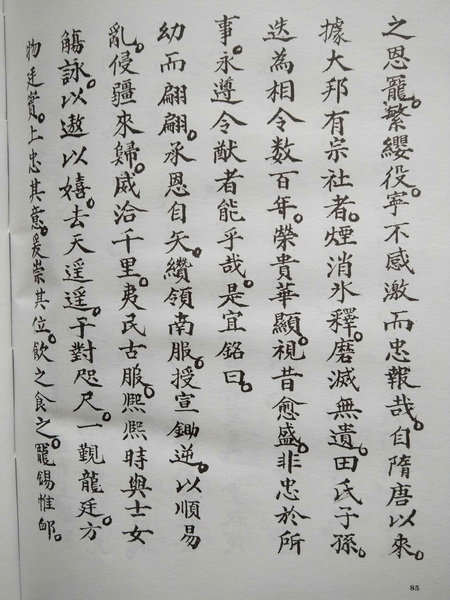 之恩寵。繁纓役。寧不感激而忠報哉。自隋唐以來。
據大邦有宗社者。煙消氷釋。磨滅無遺。田氏子孫。
迭為相令数百年。榮貴華顯。視昔愈盛。非忠於所
事。永遵令猷者能乎哉。是宜銘曰。
幼而翩翩。承恩自天。纘領南服。授宣鋤逆。以順易
亂。侵疆來歸。威洽千里。夷民古服。熙熙時與士女
觴詠。以遨以嬉。去天遥遥。于對咫尺。一覲龍廷。方
物廷實。上忠其意。爰崇其位。飲之食之。寵錫惟郎。
85